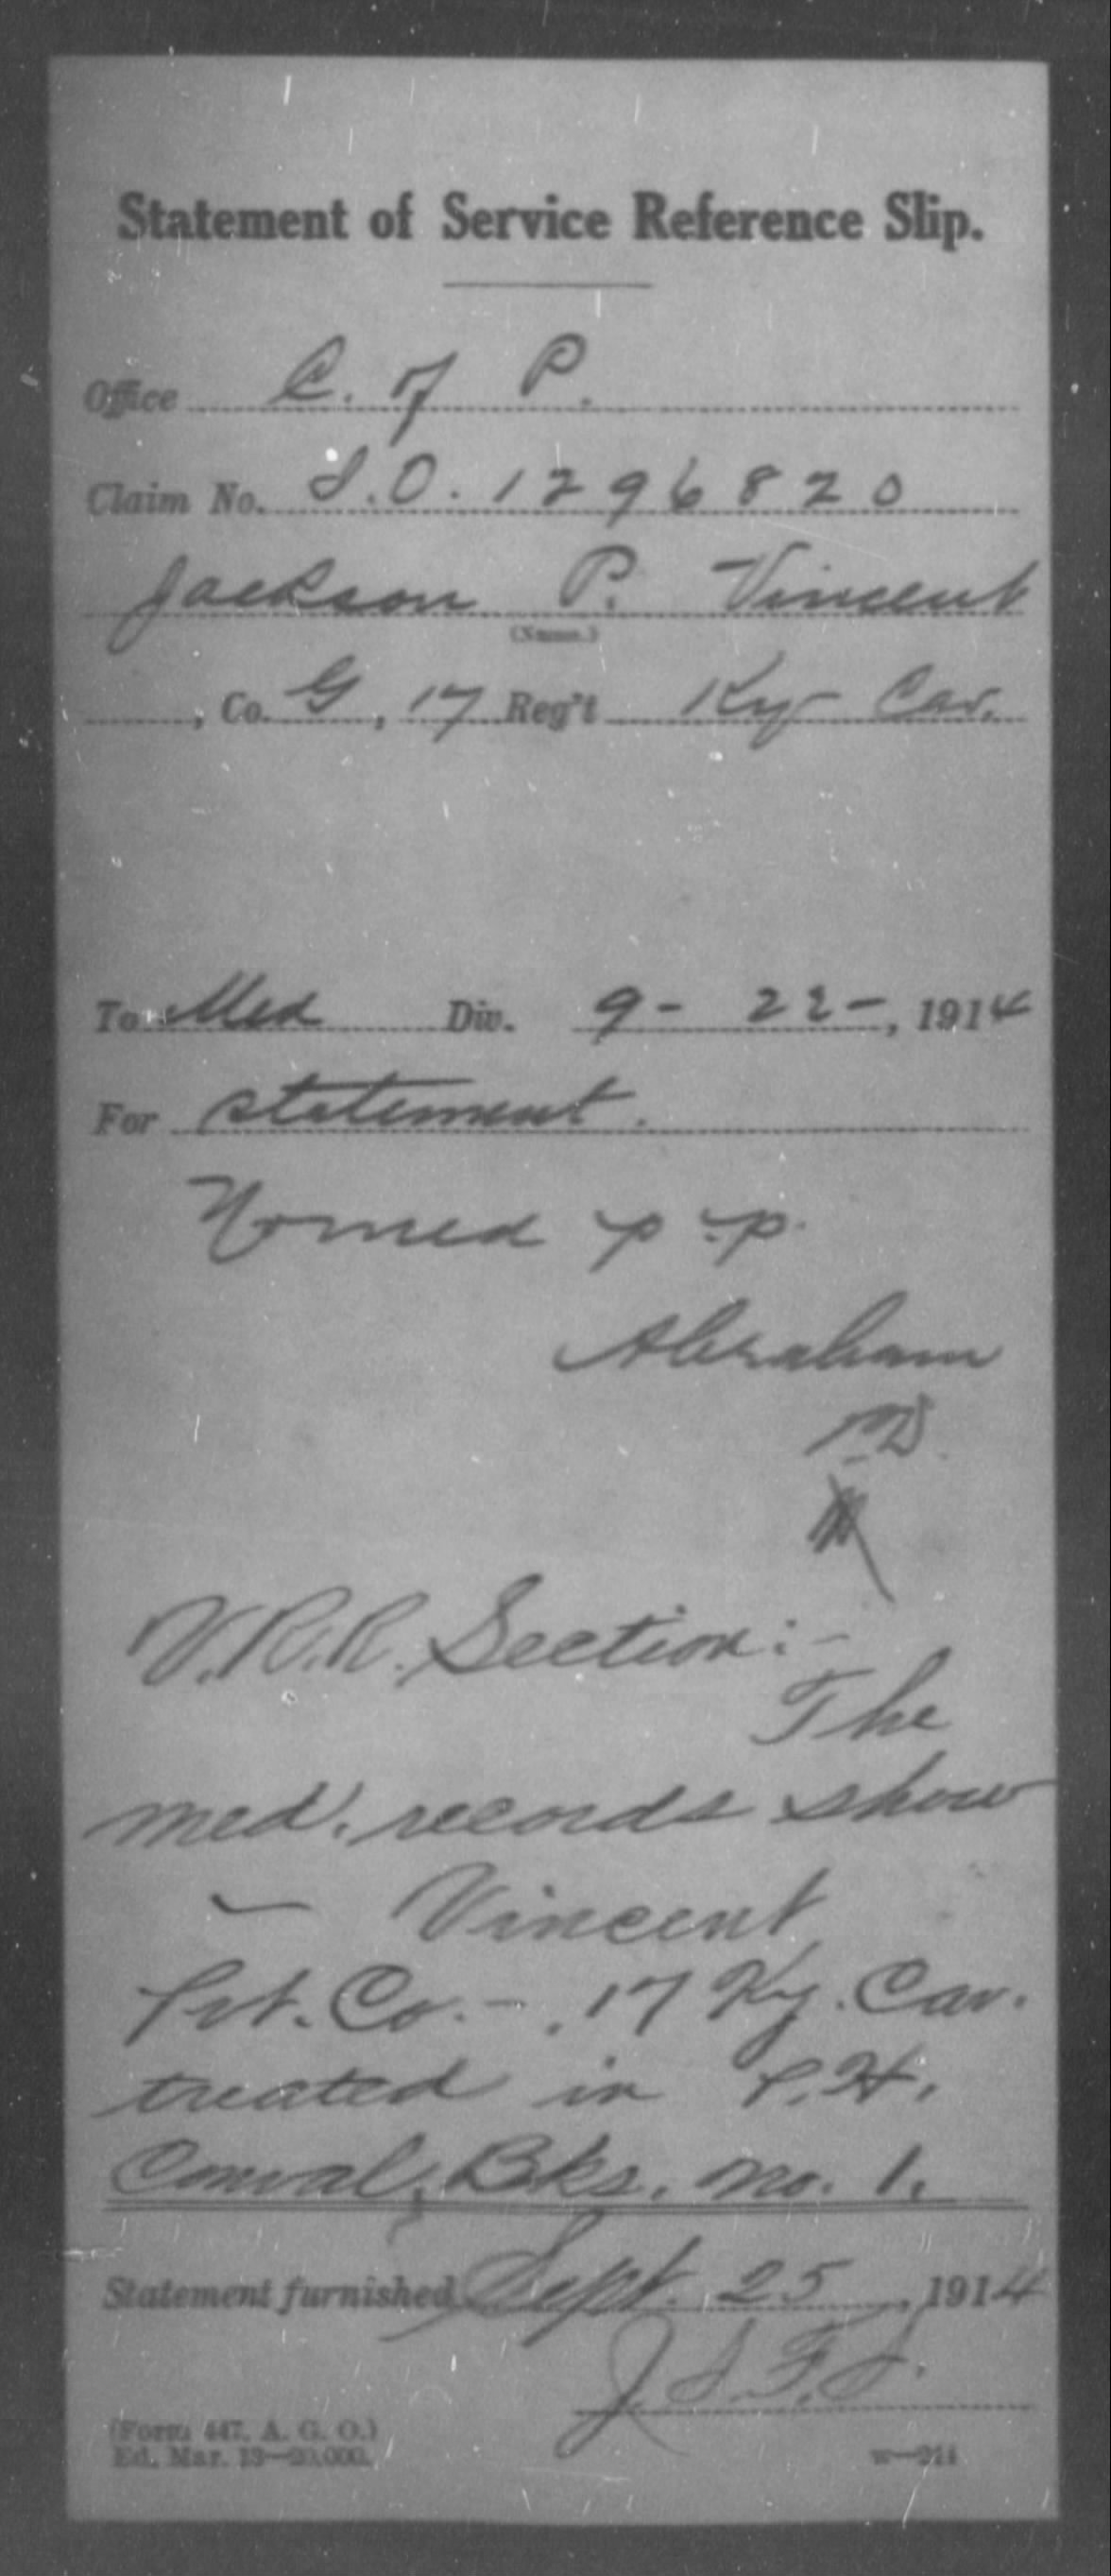 Statement of Service Reference Slip.
Office C. of P.
Claim No. S.O. 1296820
Jackson P. Vincent
(Name.)
, Co. G, 17 Reg't Ky Cav.
To Med Div. 9-22-, 1914
For statement.
Abraham
V.R.R. Section:-
The
med. records show
— Vincent
Pvt. Co. -, 17 Ky. Cav.
treated in P.H.
Conval. Bks. No. 1.
Statement furnished Sept. 25, 1914
J.S.F.S.
(Form 447, A. G. O.)
Ed. Mar. 13—20,000.